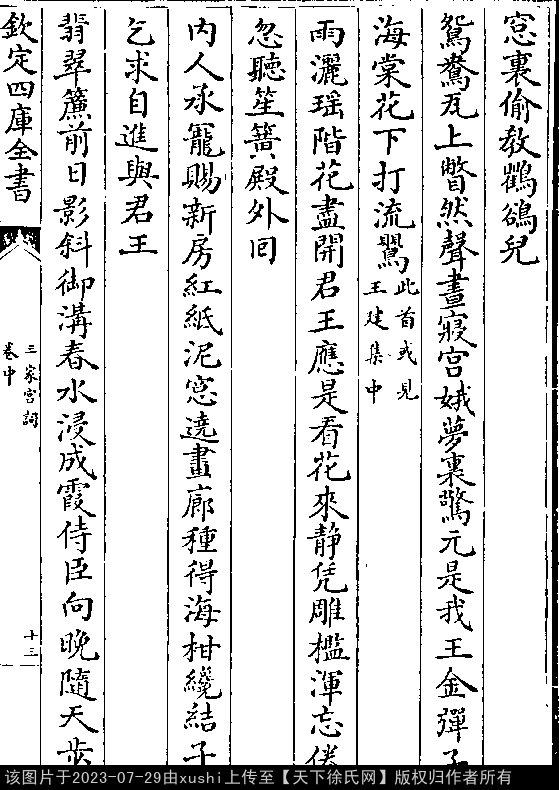 窓裏偷教鸚鵡兒
鴛鴦瓦上瞥然聲晝寢宫娥夢裏驚元是我王金彈子
海棠花下打流鶯此首或見王建集中
雨灑瑶階花盡開君王應是看花來静凭雕檻渾忘倦
忽聽笙簧殿外回
内人承寵賜新房紅紙泥窓遶畫廊種得海柑纔結子
乞求自進與君王
翡翠簾前日影斜御溝春水浸成霞侍臣向晚隨天步
欽定四庫全書
三家宫詞
卷中
十三
该图片于2023-07-29由xushi上传至【天下徐氏网】版权归作者所有